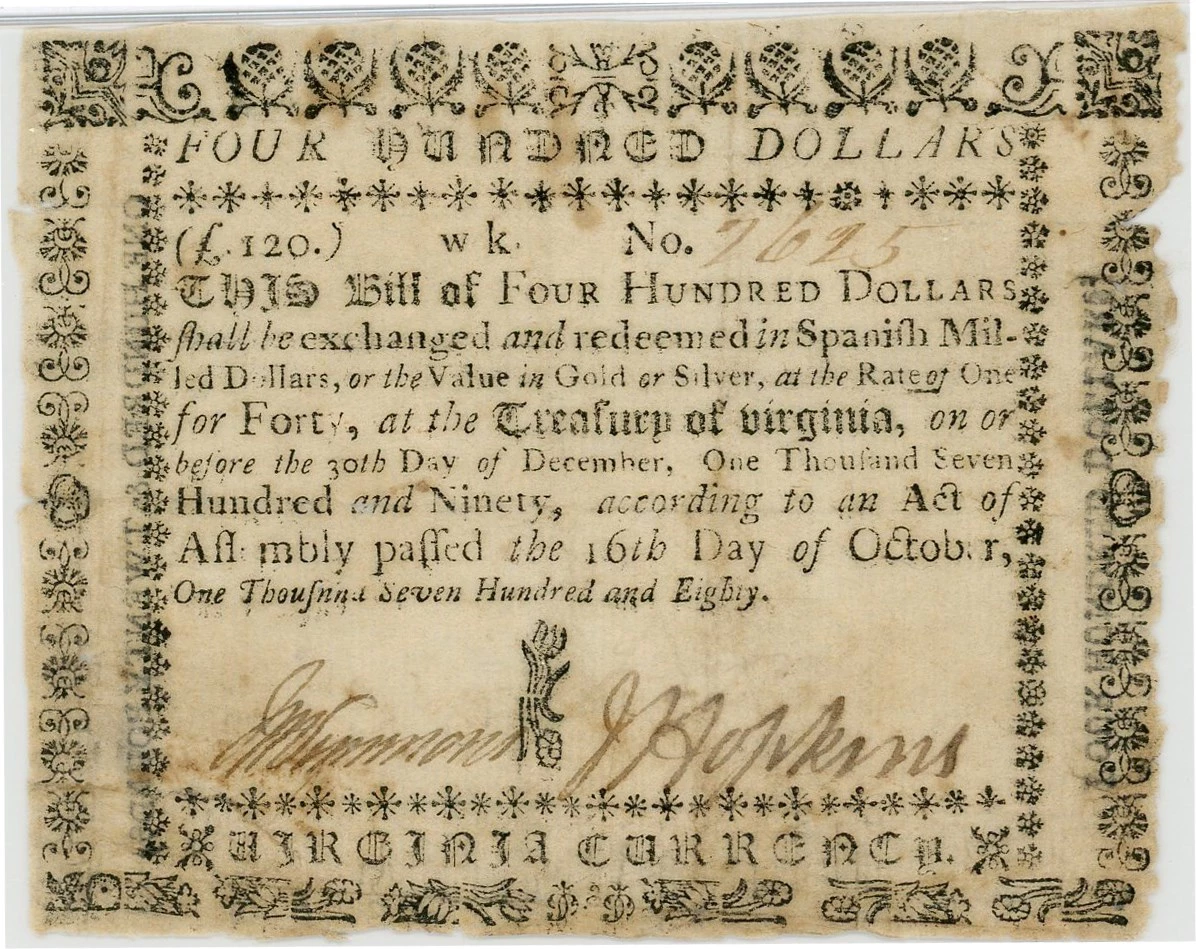 FOUR HUNDNED DOLLARS
(£.120.) w k. No. 2625
THIS Bill of FOUR HUNDRED DOLLARS
ſhall be exchanged and redeemed in Spaniſh Mil-
led Dollars, or the Value in Gold or Silver, at the Rate of One
for Forty, at the Treaſury of virginia, on or
before the 30th Day of December, One Thouſand Seven
Hundred and Ninety, according to an Act of
Aſſembly paſſed the 16th Day of October,
One Thouſnnd Seven Hundred and Eighty.
J Hopkins
UIRGINIA CURRENCY.